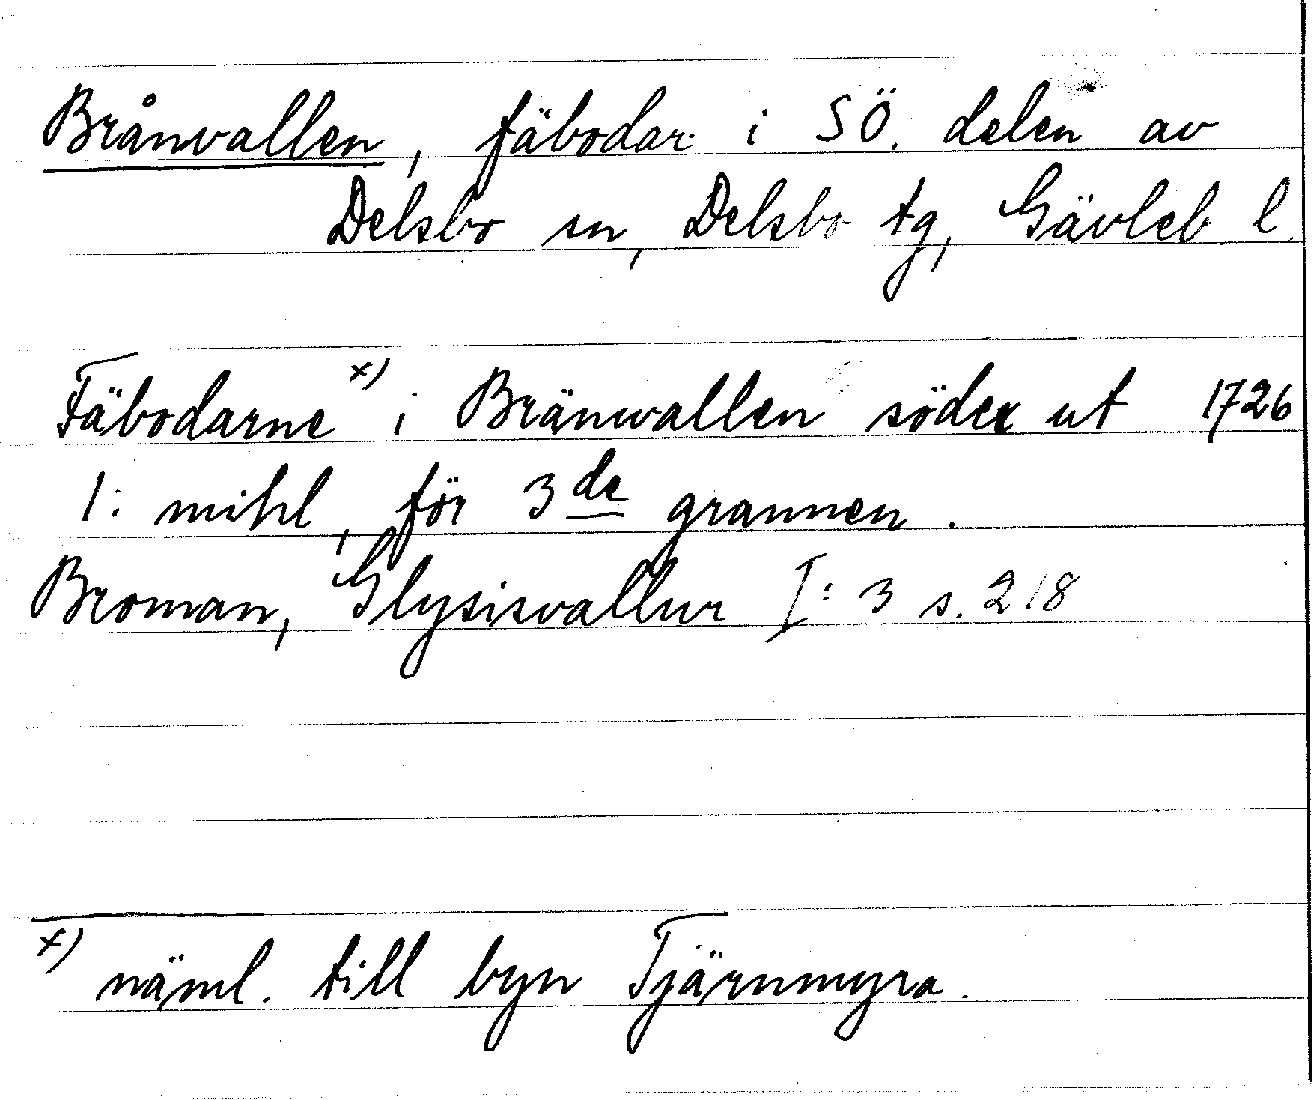 Brånvallen, fäbodar i SÖ. delen av
Delsbo sn, Delsbo tg, Gävleb l.
Fäbodarne x) i Bränwallen söder ut 1726
1: mihl, för 3de grannen.
Broman, Glysisvallur I: 3 s. 218
x) näml. till byn Tjärnmyra.